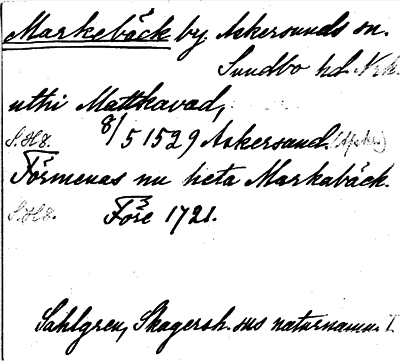 Markebäck by Askersunds sn.
Sundbo hd. Nrk.
uthi Mattkavad,
S.H.S. 8/5 1529 Askersund.
Förmenas nu heta Markabäck.
S.H.S. Före 1721.
Sahlgren, Skagersh. sns naturnamn I.